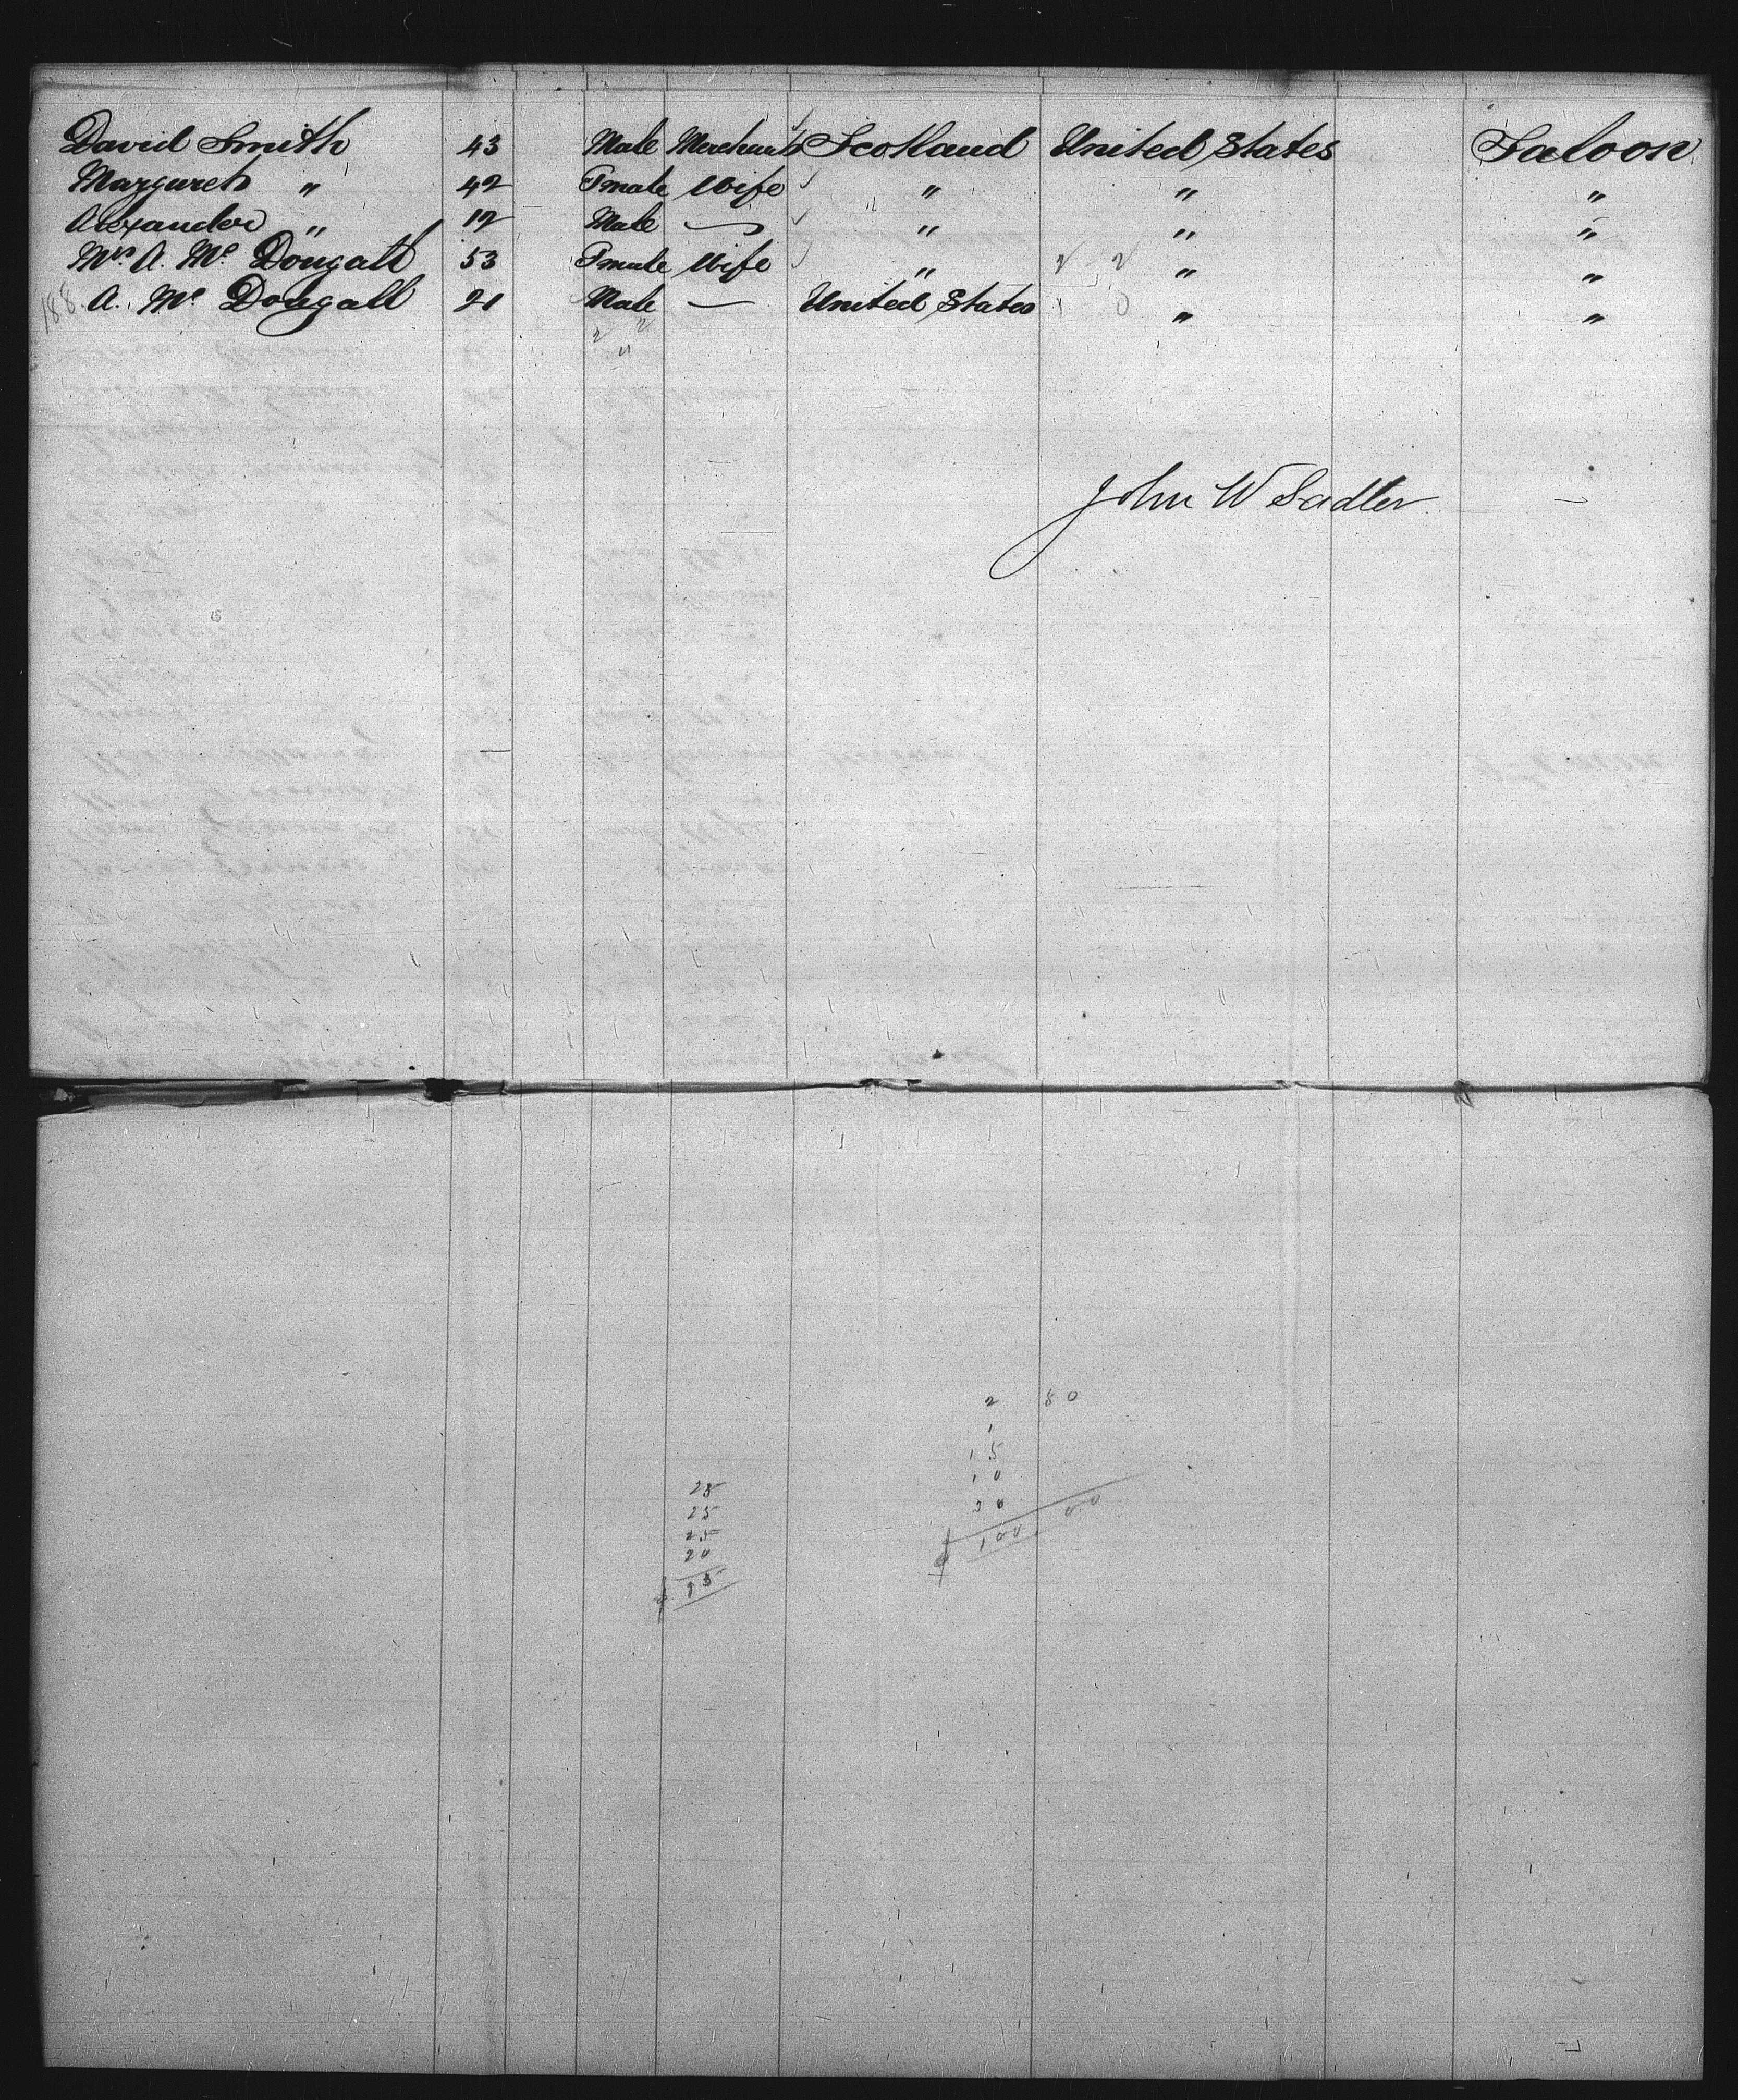 David Smith 43 Male Merchant Scotland United States Saloon
Margaret " 42 Fmale Wife " " "
Alexander " 12 Male — " " "
Mrs. A. Mc Dougall 53 Fmale Wife " " "
188 A. Mc Dougall 21 Male — United States " "
John W Sadler
2 80
1
15
10
100 00
25
25
20
$ 95